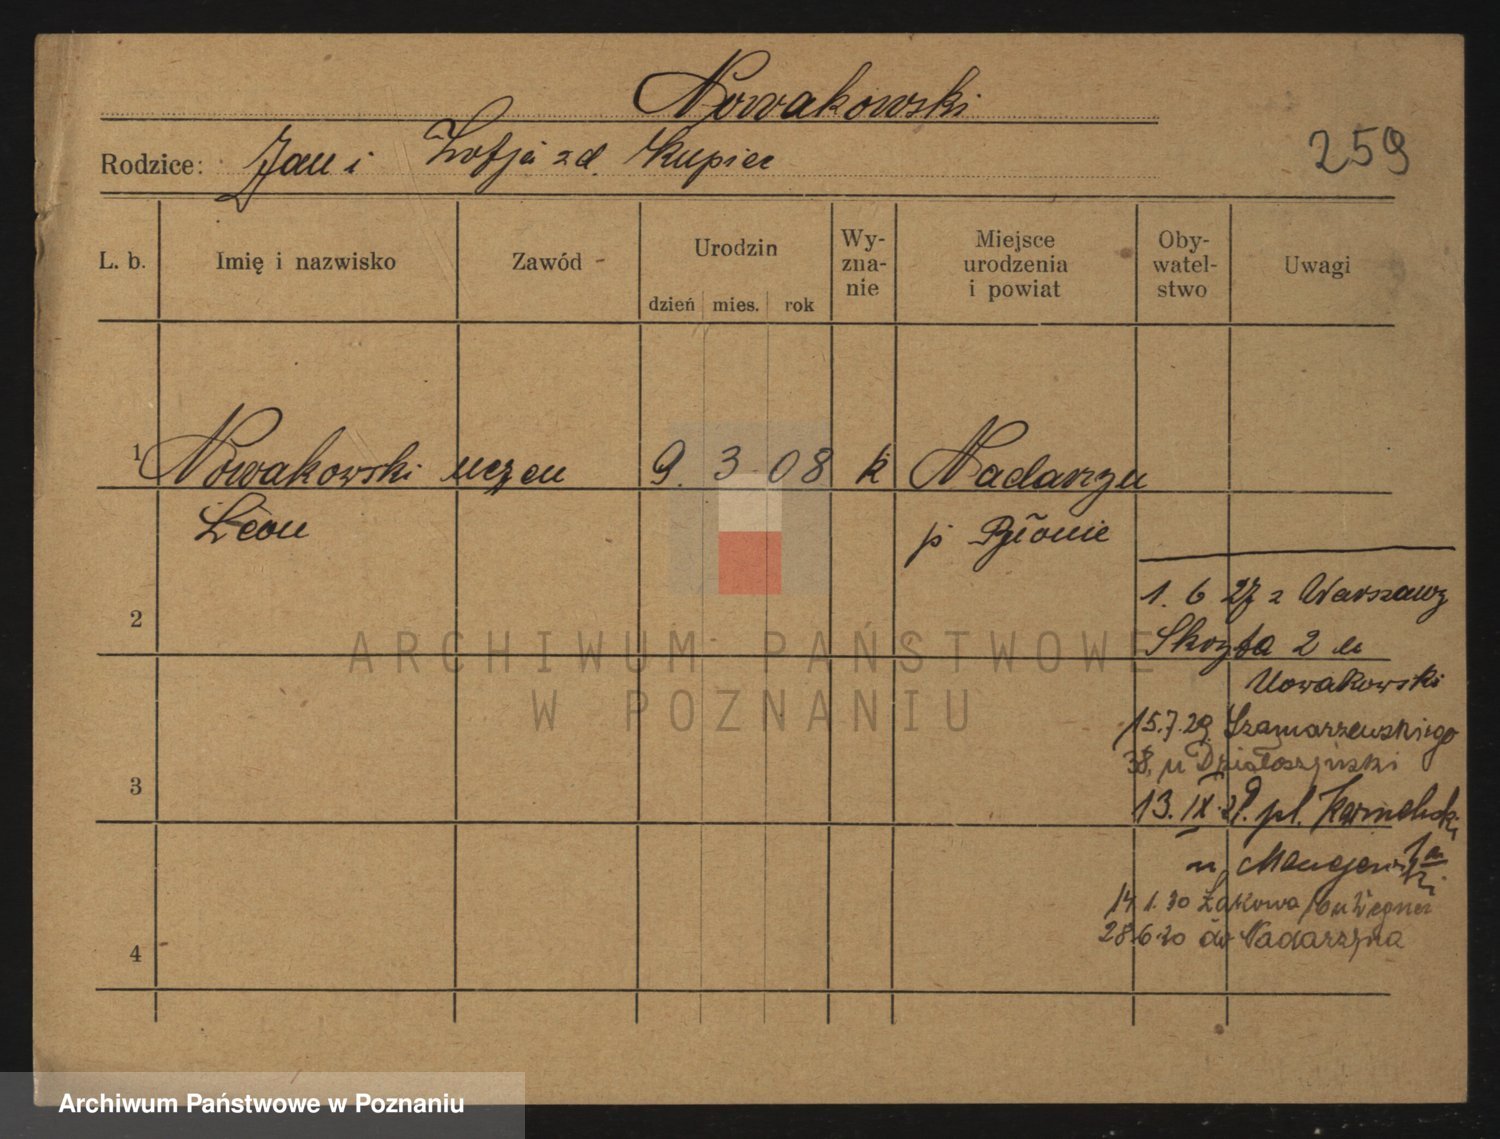 Nowakowski
259
Rodzice: Jan i Zofja zd. Kupiec
L. b. Imię i nazwisko Zawód Urodzin dzień mies. rok Wy-zna-nie Miejsce urodzenia i powiat Oby-watel-stwo Uwagi
1 Nowakowski uczeń 9. 3 08 k Nadarzyn
Leon p Błonie
1. 6 27 z Warszawy
2
Skryta 2 u
Nowakowski
15.7.29. Szamarzewskiego
38, u Działoszyński
3
13. IX. 29. pl. Karmelicki
u
14 1.30 Żakowa u Wegner
28.6.30 do Nadarzyna
4
ARCHIWUM PAŃSTWOWE
W POZNANIU
Archiwum Państwowe w Poznaniu